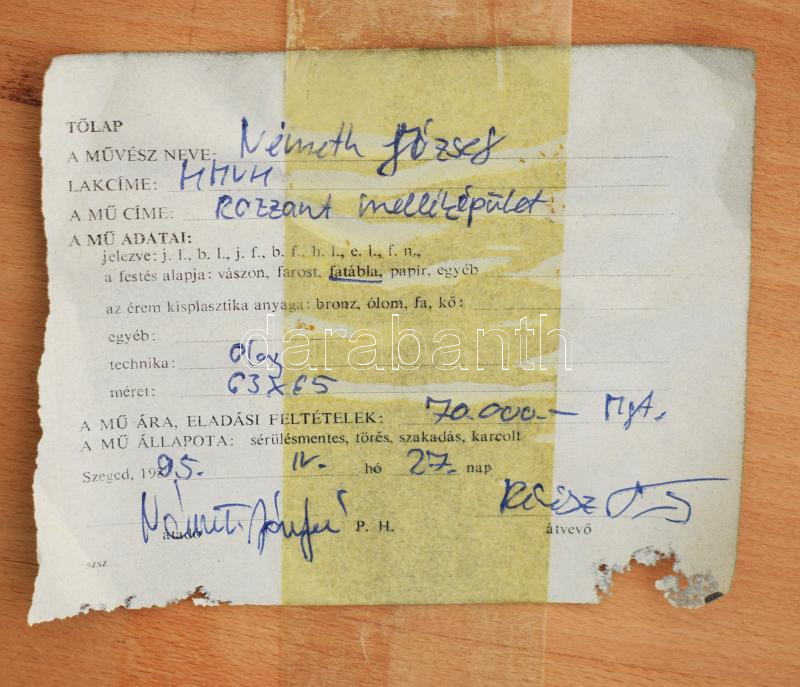 TŐLAP
A MŰVÉSZ NEVE: Németh József
LAKCÍME: HMVH
A MŰ CÍME: Rozzant melléképület
A MŰ ADATAI:
jelezve: j. l., b. l., j. f., b. f., h. l., e. l., f. n.,
a festés alapja: vászon, farost, fatábla, papír, egyéb
az érem kisplasztika anyaga: bronz, ólom, fa, kő:
egyéb:
darabanth
technika: olaj
méret: 63x65
A MŰ ÁRA, ELADÁSI FELTÉTELEK: 70.000.-
A MŰ ÁLLAPOTA: sérülésmentes, törés, szakadás, karcolt
Szeged, 1995. IV. hó 27. nap
átadó P. H. átvevő
szsz